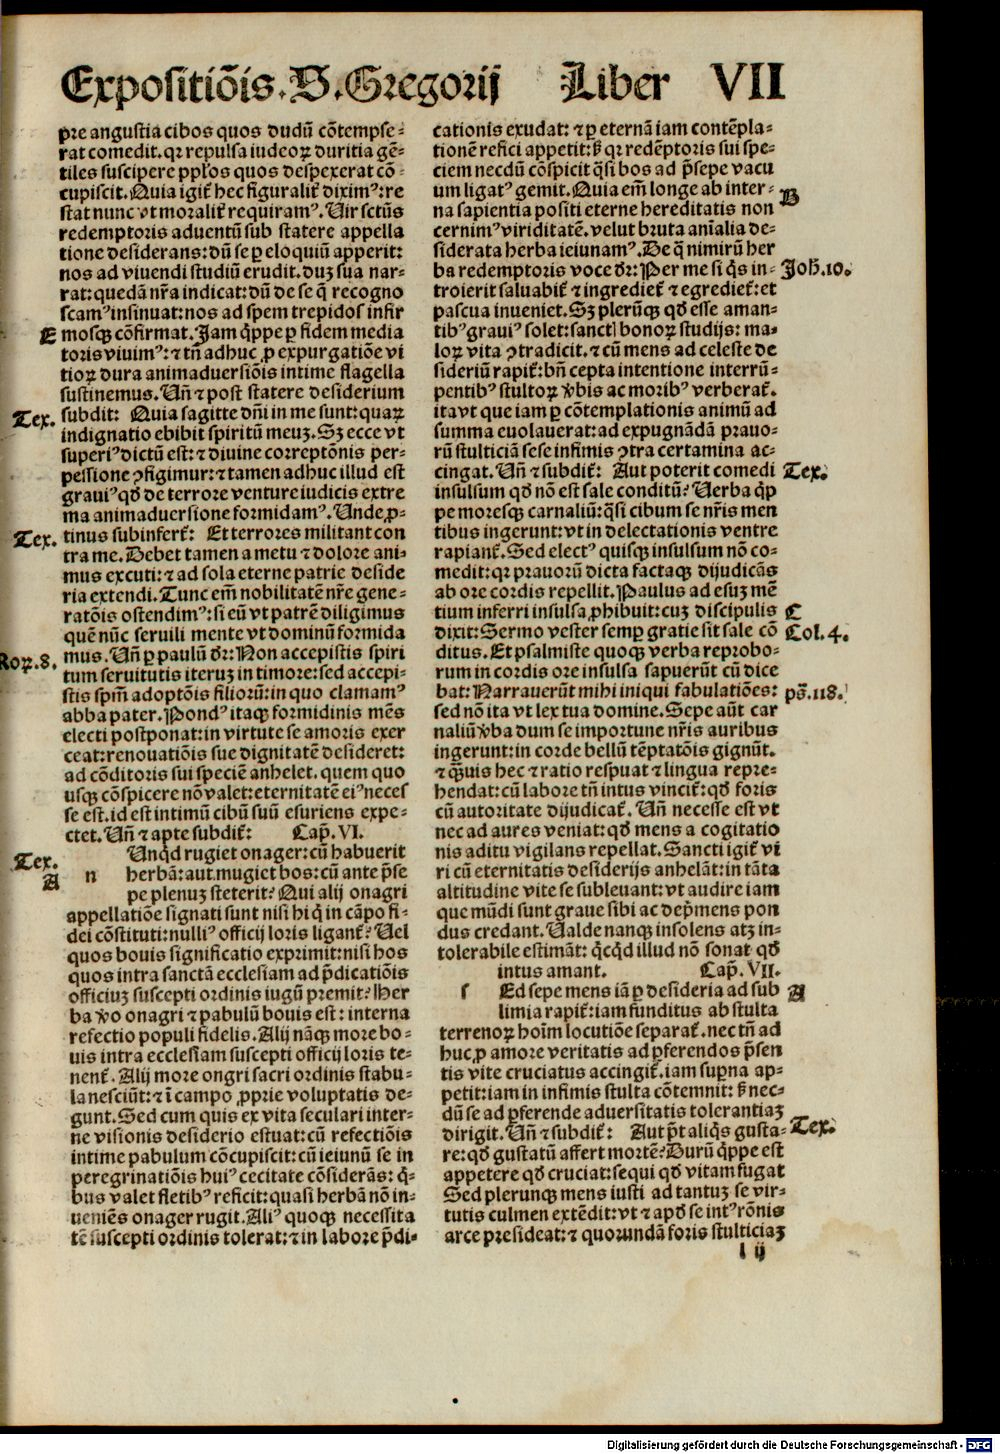 Expositiõis. D. Gregorij Liber VII
pre angustia cibos quos dudũ cõtempse-
rat comedit. qꝛ repulsa iudeoꝝ duritia gẽ-
tiles suscipere pplos quos despexerat cõ-
cupiscit. Quia igit̃ hec figuralit̃ diximꝰ: re
stat nunc vt moralit̃ requiramꝰ. Uir sctũs
redemptoris aduentũ sub statere appella
tione desiderans: dũ se ꝑ eloquiũ apperit:
nos ad viuendi studiũ erudit. duꝫ sua nar-
rat: quedã nr̃a indicat: dũ de se q̃ recogno
scamꝰ insinuat: nos ad spem trepidos infir
E mosqꝫ cõfirmat. Iam q̃ppe ꝑ fidem media
toris viuimꝰ: ⁊ tñ adhuc ꝓ expurgatiõe vi
tioꝝ dura animaduersiõis intime flagella
sustinemus. Uñ ⁊ post statere desiderium
Tex. subdit: Quia sagitte dñi in me sunt: quaꝝ
indignatio ebibit spiritũ meuꝫ. Sꝫ ecce vt
superiꝰ dictũ est: ⁊ diuine correptõnis per-
pessione ꝯfigimur: ⁊ tamen adhuc illud est
grauiꝰ qđ de terrore venture iudicis extre
ma animaduersione formidamꝰ. Unde ꝓ-
Tex. tinus subinfert̃: Et terrores militant con
tra me. Debet tamen a metu ⁊ dolore ani-
mus excuti: ⁊ ad sola eterne patrie deside
ria extendi. Tunc em̃ nobilitatẽ nr̃e gene-
ratõis ostendimꝰ: si eũ vt patrẽ diligimus
quẽ nũc seruili mente vt dominũ formida
Roꝝ. 8. mus. Uñ ꝑ paulũ dr̃: Non accepistis spiri
tum seruitutis iteruꝫ in timore: sed accepi-
stis spm̃ adoptõis filiorũ: in quo clamamꝰ
abba pater. Pondꝰ itaqꝫ formidinis mẽs
electi postponat: in virtute se amoris exer
ceat: renouatiõis sue dignitatẽ desideret:
ad cõditoris sui speciẽ anhelet. quem quo
usqꝫ cõspicere nõ valet: eternitatẽ eiꝰ neces
se est. id est intimũ cibũ suũ esuriens expe-
ctet. Uñ ⁊ apte subdit̃: Cap̃. VI.
Tex. Unqđ rugiet onager: cũ habuerit
A n herbã: aut mugiet bos: cũ ante p̃se
pe plenuꝫ steterit? Qui alij onagri
appellatiõe signati sunt nisi hi q̃ in cãpo fi-
dei cõstituti: nulliꝰ officij loris ligant̃? Uel
quos bouis significatio exprimit: nisi hos
quos intra sanctã ecclesiam ad p̃dicatiõis
officiuꝫ suscepti ordinis iugũ premit? Her
ba ṽo onagri ⁊ pabulũ bouis est: interna
refectio populi fidelis. Alij nãqꝫ more bo-
uis intra ecclesiam suscepti officij loris te-
nent̃. Alij more ongri sacri ordinis stabu-
la nesciũt: ⁊ ĩ campo ꝓprie voluptatis de-
gunt. Sed cum quis ex vita seculari inter-
ne visionis desiderio estuat: cũ refectiõis
intime pabulum cõcupiscit: cũ ieiunũ se in
peregrinatiõis huiꝰ cecitate cõsiderãs: q̃-
bus valet fletibꝰ reficit: quasi herbã nõ in-
ueniẽs onager rugit. Aliꝰ quoqꝫ necessita
tẽ suscepti ordinis tolerat: ⁊ in labore p̃di-
cationis exudat: ⁊ ꝑ eternã iam contẽpla-
tionẽ refici appetit: s̃ qꝛ redẽptoris sui spe-
ciem necdũ cõspicit q̃si bos ad p̃sepe vacu
um ligatꝰ gemit. Quia em̃ longe ab inter- B
na sapientia positi eterne hereditatis non
cernimꝰ viriditatẽ. velut bruta anĩalia de-
siderata herba ieiunamꝰ. De q̃ nimirũ her
ba redemptoris voce dr̃: Per me si q̃s in- Joh̃. 10.
troierit saluabit̃ ⁊ ingrediet̃ ⁊ egrediet̃: et
pascua inueniet. Sꝫ plerũqꝫ qđ esse aman-
tibꝰ grauiꝰ solet: sanctꝭ bonoꝝ studijs: ma-
loꝝ vita ꝯtradicit. ⁊ cũ mens ad celeste de
sideriũ rapit̃: bñ cepta intentione interrũ-
pentibꝰ stultoꝝ ṽbis ac moribꝰ verberat̃.
ita vt que iam ꝑ cõtemplationis animũ ad
summa euolauerat: ad expugnãdã prauo-
rũ stulticiã sese infimis ꝯtra certamina ac-
cingat. Uñ ⁊ subdit̃: Aut poterit comedi Tex.
insulsum qđ nõ est sale conditũ? Uerba q̃p
pe moresqꝫ carnaliũ: q̃si cibum se nr̃is men
tibus ingerunt: vt in delectationis ventre
rapiant̃. Sed electꝰ quisqꝫ insulsum nõ co-
medit: qꝛ prauorũ dicta factaqꝫ dijudicãs
ab ore cordis repellit. Paulus ad esuꝫ mẽ
tium inferri insulsa ꝓhibuit: cuꝫ discipulis C
dixit: Sermo vester semꝑ gratie sit sale cõ Col. 4.
ditus. Et psalmiste quoqꝫ verba reprobo-
rum in cordis ore insulsa sapuerũt cũ dice
bat: Narrauerũt mihi iniqui fabulatiões: ps̃. 118.
sed nõ ita vt lex tua domine. Sepe aũt car
naliũ ṽba dum se importune nr̃is auribus
ingerunt: in corde bellũ tẽptatõis gignũt.
⁊ q̃uis hec ⁊ ratio respuat ⁊ lingua repre-
hendat: cũ labore tñ intus vincit̃: qđ foris
cũ autoritate dijudicat̃. Uñ necesse est vt
nec ad aures veniat: qđ mens a cogitatio
nis aditu vigilans repellat. Sancti igit̃ vi
ri cũ eternitatis desiderijs anhelãt: in tãta
altitudine vite se subleuant: vt audire iam
que mũdi sunt graue sibi ac dep̃mens pon
dus credant. Ualde nanqꝫ insolens atꝫ in-
tolerabile estimãt: q̃cq̃d illud nõ sonat qđ
intus amant. Cap̃. VII.
s Ed sepe mens iã ꝑ desideria ad sub A
limia rapit̃: iam funditus ab stulta
terrenoꝝ hoĩm locutiõe separat̃. nec tñ ad
huc ꝓ amore veritatis ad ꝑferendos p̃sen
tis vite cruciatus accingit̃. iam suꝑna ap-
petit: iam in infimis stulta cõtemnit: s̃ nec-
dũ se ad ꝑferende aduersitatis tolerantiaꝫ
dirigit. Uñ ⁊ subdit̃: Aut p̃t aliq̃s gusta- Tex.
re: qđ gustatũ affert mortẽ? Durũ q̃ppe est
appetere qđ cruciat: sequi qđ vitam fugat
Sed plerunqꝫ mens iusti ad tantuꝫ se vir-
tutis culmen extẽdit: vt ⁊ apđ se intꝰ rõnis
arce presideat: ⁊ quorundã foris stulticiaꝫ
l ij
Digitalisierung gefördert durch die Deutsche Forschungsgemeinschaft - DFG